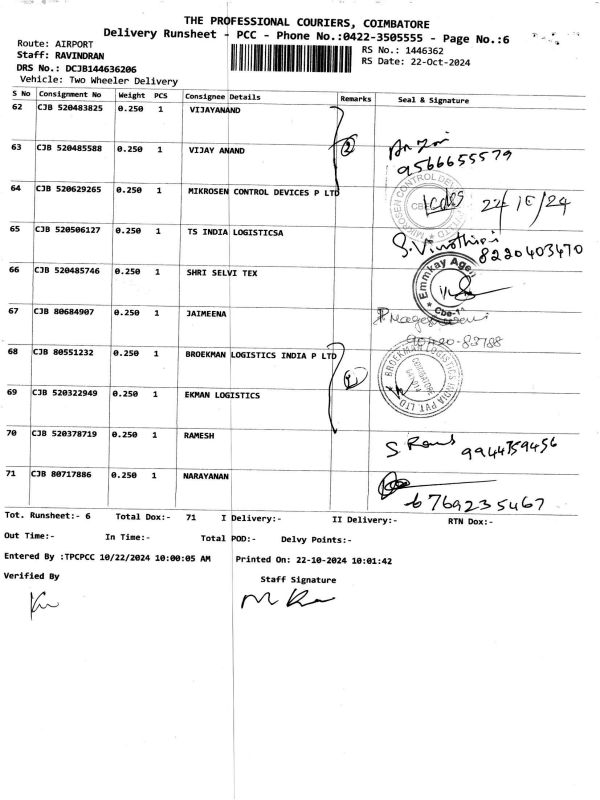 THE PROFESSIONAL COURIERS, COIMBATORE
Delivery Runsheet - PCC - Phone No.:0422-3505555 - Page No.:6
Route: AIRPORT
Staff: RAVINDRAN
DRS No.: DCJB144636206
Vehicle: Two Wheeler Delivery
RS No.: 1446362
RS Date: 22-Oct-2024
S No Consignment No Weight PCS Consignee Details Remarks Seal & Signature
62 CJB 520483825 0.250 1 VIJAYANAND
63 CJB 520485588 0.250 1 VIJAY ANAND
2
9566655579
64 CJB 520629265 0.250 1 MIKROSEN CONTROL DEVICES P LTD
MIKROSEN CONTROL DEV
22/10/24
65 CJB 520506127 0.250 1 TS INDIA LOGISTICSA
S. Vinothini
8220403470
66 CJB 520485746 0.250 1 SHRI SELVI TEX
Emmkay Agen
67 CJB 80684907 0.250 1 JAIMEENA
68 CJB 80551232 0.250 1 BROEKMAN LOGISTICS INDIA P LTD
BROEKMAN LOGISTICS INDIA PVT LTD
COIMBATORE
69 CJB 520322949 0.250 1 EKMAN LOGISTICS
70 CJB 520378719 0.250 1 RAMESH
9944759456
71 CJB 80717886 0.250 1 NARAYANAN
6769235467
Tot. Runsheet:- 6 Total Dox:- 71 I Delivery:- II Delivery:- RTN Dox:-
Out Time:- In Time:- Total POD:- Delvy Points:-
Entered By :TPCPCC 10/22/2024 10:00:05 AM Printed On: 22-10-2024 10:01:42
Verified By Staff Signature